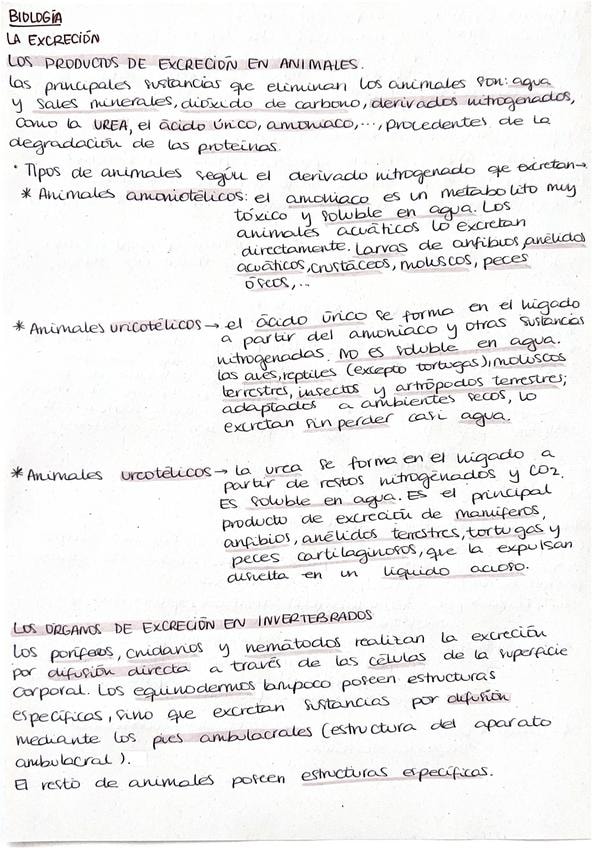 BIOLOGÍA
LA EXCRECIÓN
LOS PRODUCTOS DE EXCRECIÓN EN ANIMALES.
Las principales sustancias que eliminan los animales son: agua
y sales minerales, dióxido de carbono, derivados nitrogenados,
como la UREA, el ácido único, amoniaco,..., procedentes de la
degradación de las proteínas.
· Tipos de animales según el derivado nitrogenado que excretan→
* Animales amoniotélicos: el amoniaco es un metabolito muy
tóxico y soluble en agua. Los
animales acuáticos lo excretan
directamente. Larvas de anfibios, anélidos
acuáticos, crustáceos, moluscos, peces
óseos,...
* Animales uricotélicos → el ácido úrico se forma en el hígado
a partir del amoniaco y otras sustancias
nitrogenadas. NO es soluble en agua.
Las aves, reptiles (excepto tortugas), moluscos
terrestres, insectos y artrópodos terrestres;
adaptados a ambientes secos, lo
excretan sin perder casi agua.
* Animales ureotélicos → la urea se forma en el hígado a
partir de restos nitrogenados y CO2.
ES soluble en agua. ES el principal
producto de excreción de mamíferos,
anfibios, anélidos terrestres, tortugas y
peces cartilaginosos, que la expulsan
disuelta en un líquido acuoso.
LOS ÓRGANOS DE EXCRECIÓN EN INVERTEBRADOS
Los poríferos, cnidarios y nemátodos realizan la excreción
por difusión directa a través de las células de la superficie
corporal. Los equinodermos tampoco poseen estructuras
específicas, sino que excretan sustancias por difusión
mediante los pies ambulacrales (estructura del aparato
ambulacral).
El resto de animales poseen estructuras específicas.